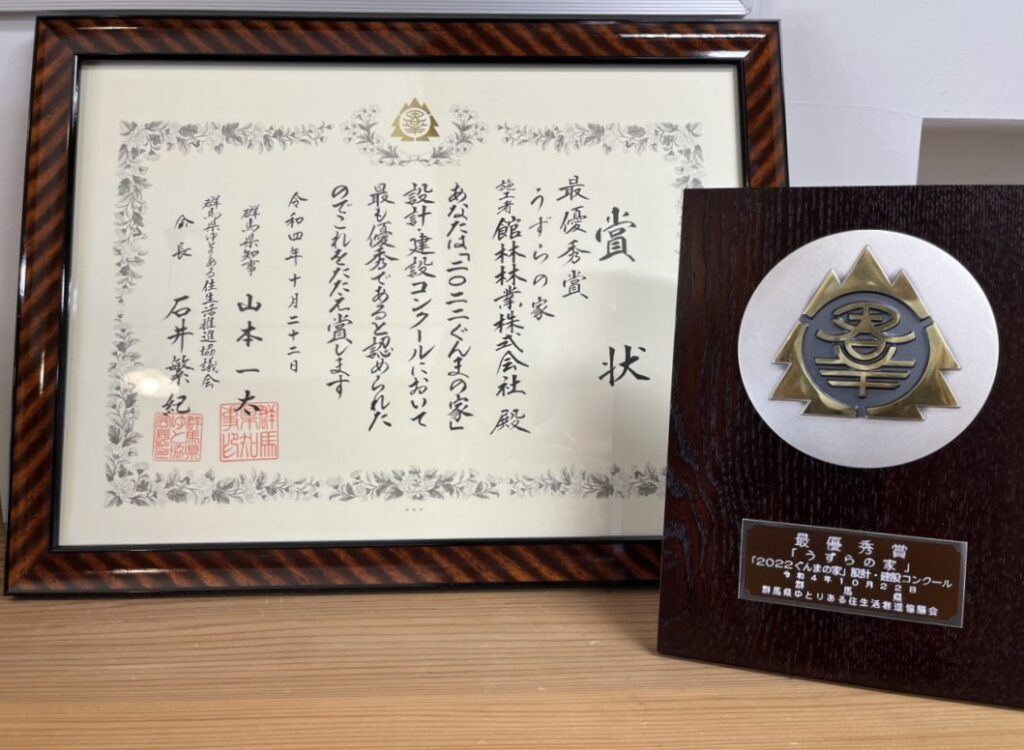 賞状
最優秀賞
うずらの家
施工者 館林林業株式会社 殿
あなたは「二〇二二ぐんまの家」
設計・建設コンクールにおいて
最も優秀であると認められた
のでこれをたたえ賞します
令和四年十月二十二日
群馬県知事 山本一太
群馬県ゆとりある住生活推進協議会
会長 石井繁紀
最優秀賞
「うずらの家」
「2022ぐんまの家」設計・建設コンクール
令和4年10月22日
群馬県
群馬県ゆとりある住生活推進協議会